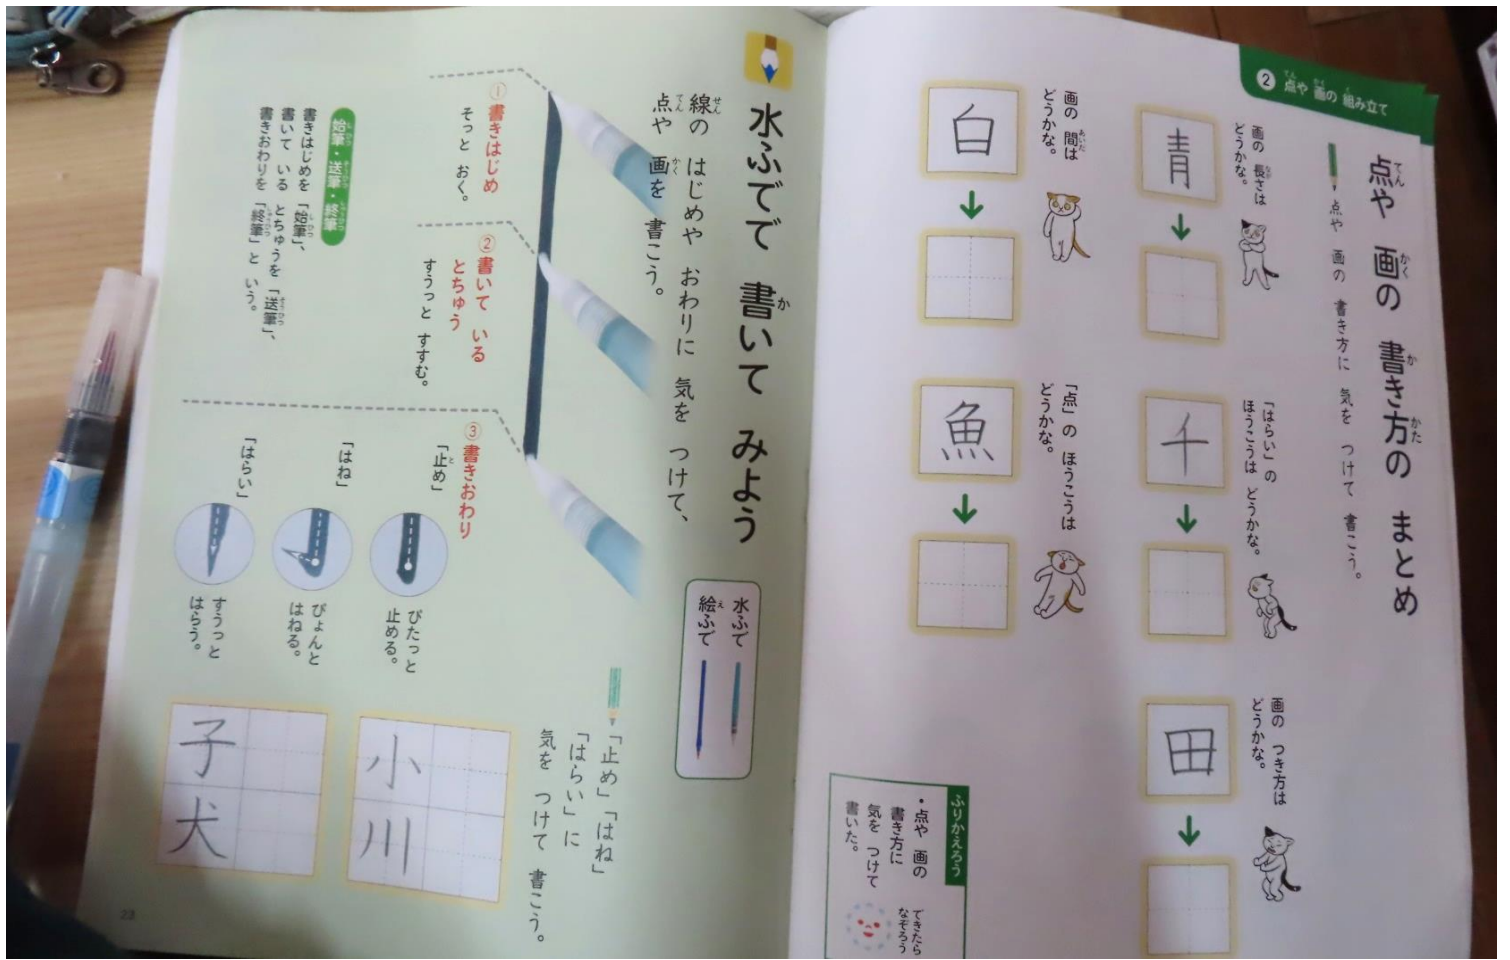 ② 点や 画の 組み立て
点や 画の 書き方の まとめ
点や 画の 書き方に 気を つけて 書こう。
画の 長さは
どうかな。
青
「はらい」の
ほうこうは どうかな。
千
画の つき方は
どうかな。
田
画の 間は
どうかな。
白
「点」の ほうこうは
どうかな。
魚
ふりかえろう
・点や 画の
書き方に
気を つけて
書いた。
できたら
なぞろう
水ふでで 書いて みよう
線の はじめや おわりに 気を つけて、
点や 画を 書こう。
水ふで
絵ふで
① 書きはじめ
そっと おく。
② 書いて いる
とちゅう
すうっと すすむ。
③ 書きおわり
「止め」
ぴたっと
止める。
「はね」
ぴょんと
はねる。
「はらい」
すうっと
はらう。
始筆・送筆・終筆
書きはじめを 「始筆」、
書いて いる とちゅうを 「送筆」、
書きおわりを 「終筆」と いう。
「止め」「はね」
「はらい」に
気を つけて 書こう。
小
川
子
犬
23